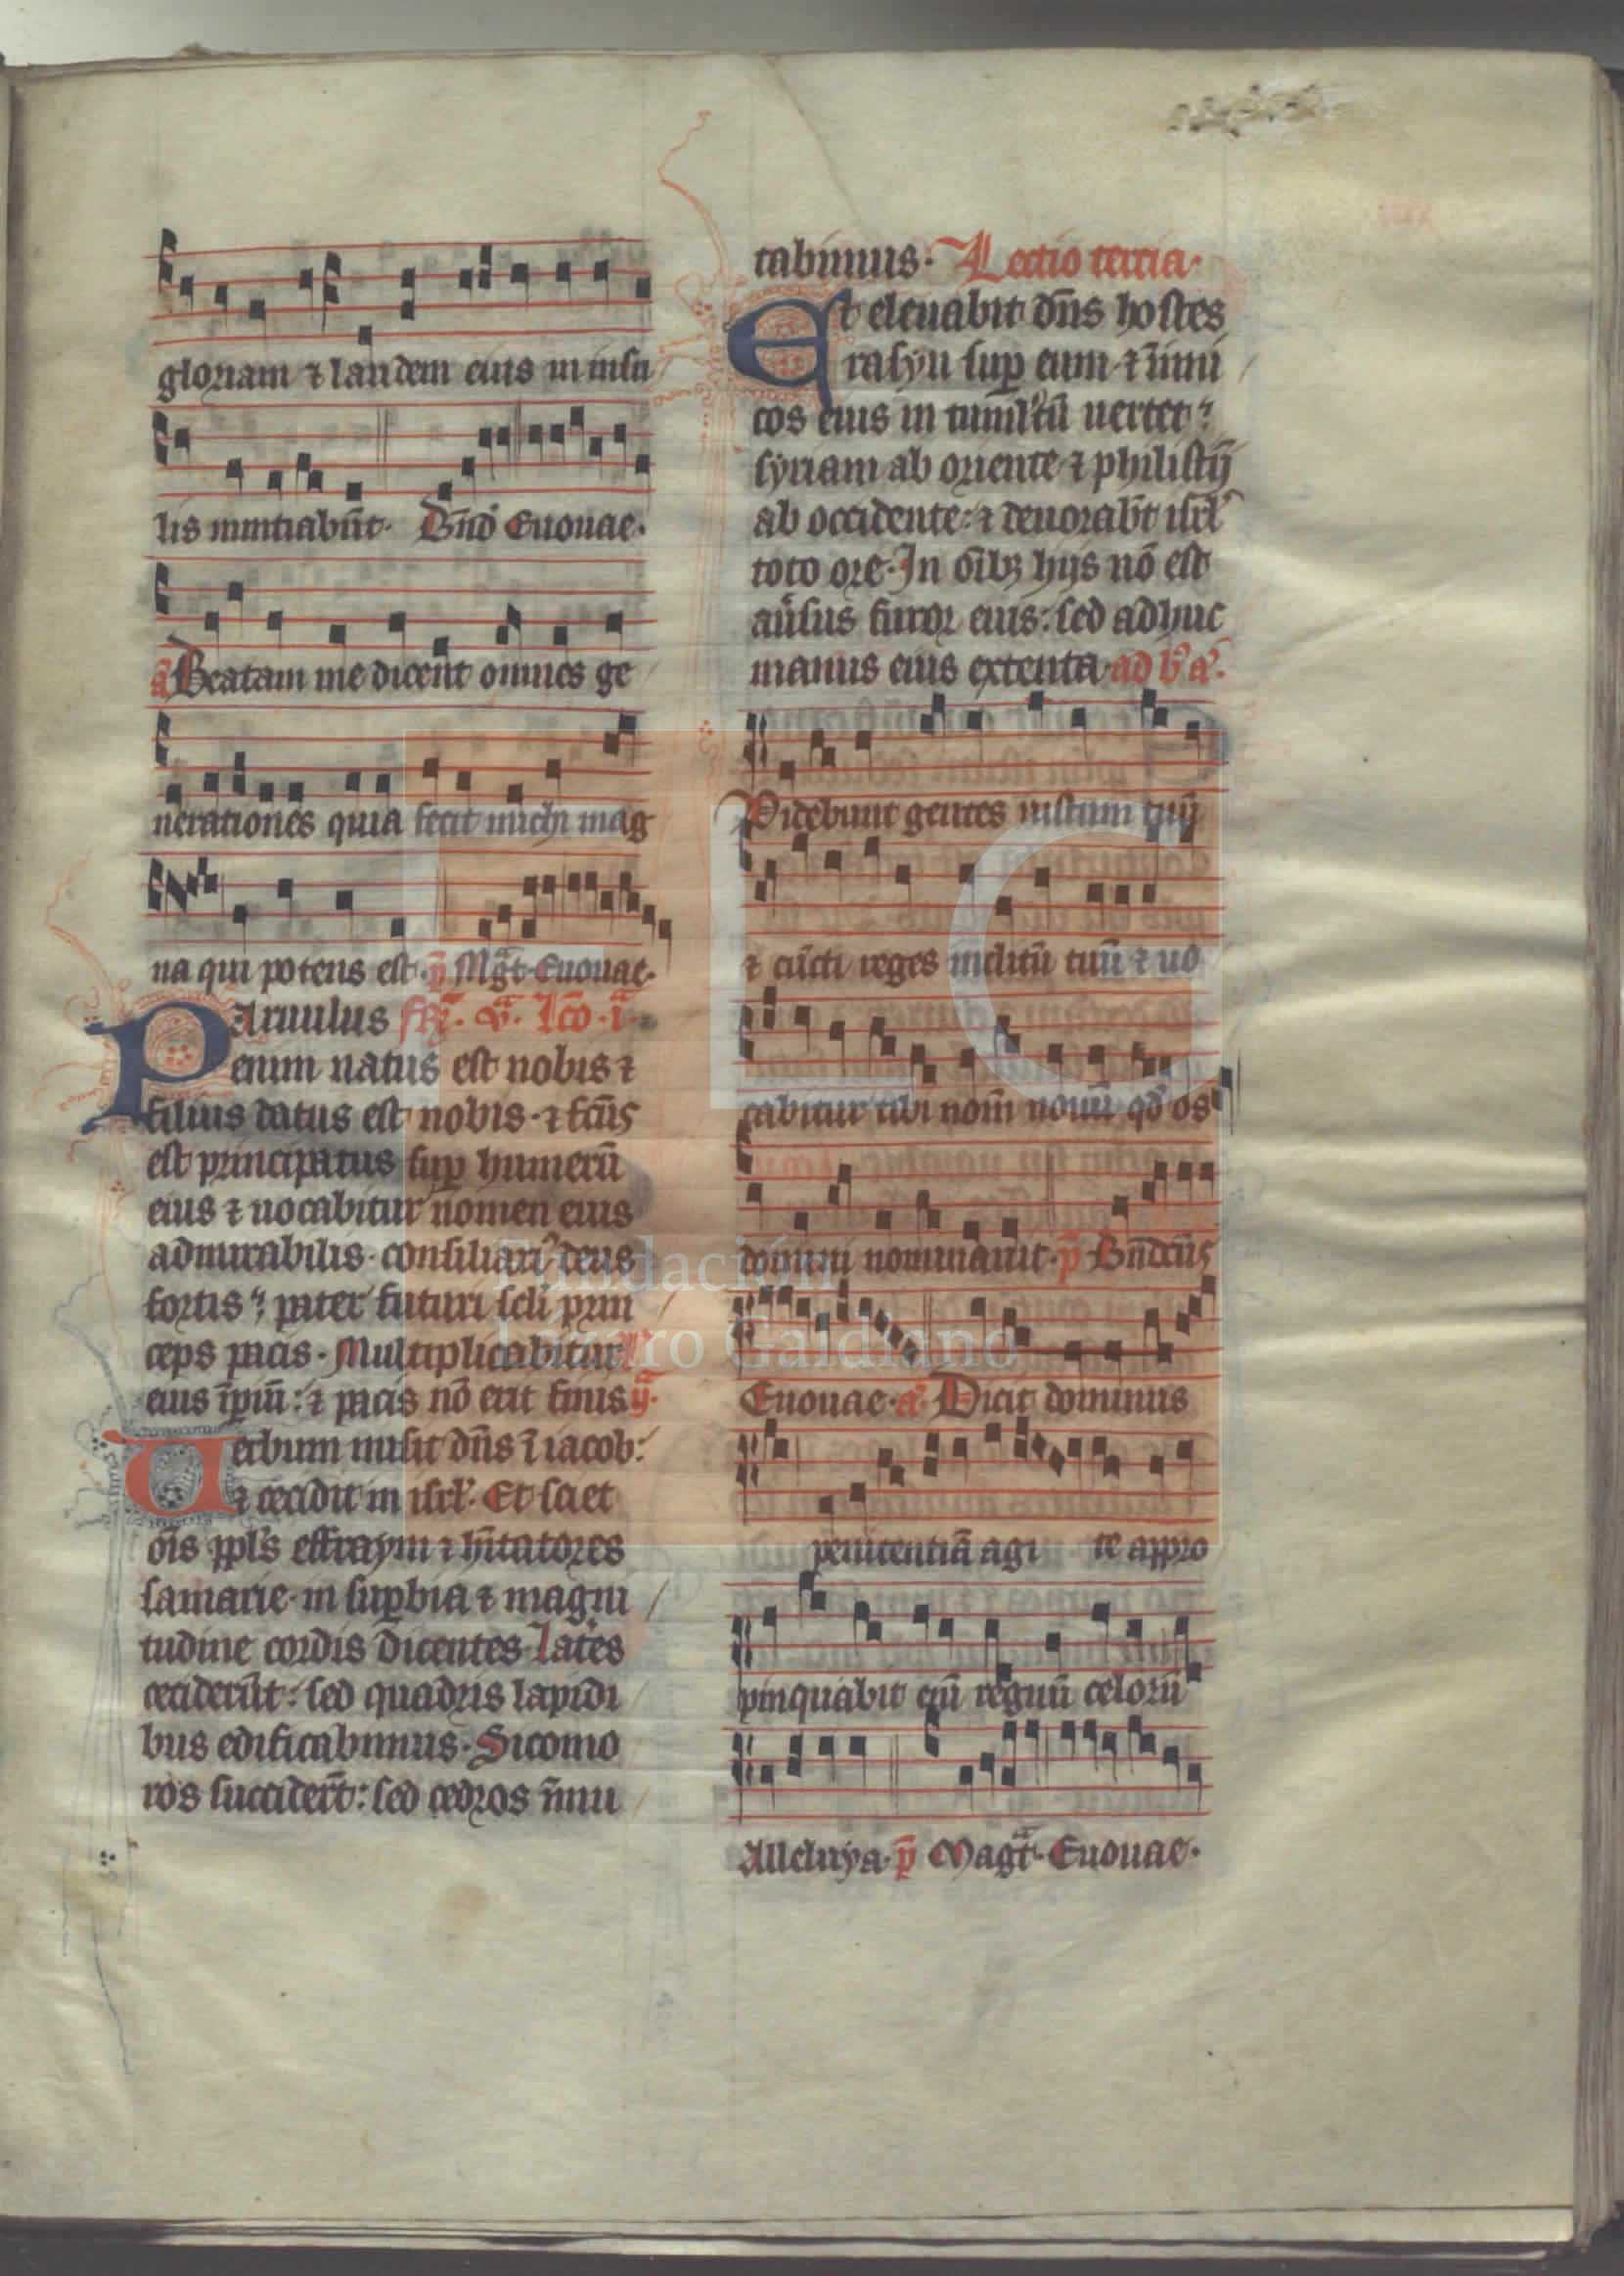 gloriam ⁊ laudem eius in insu
lis nuntiabūt. Bn̄d Euouae.
a̅ Beatam me dicent omnes ge
nerationes quia fecit michi mag
na qui potens est. p̄ Mag̅t. Euouae.
PAruulus fr̄. v̄. lc̄o. i̅
enim natus est nobis ⁊
filius datus est nobis. ⁊ fc̄us
est principatus suꝑ humerū
eius ⁊ uocabitur nomen eius
admirabilis. consiliariꝰ deus
fortis: pater futuri scli prin
ceps pacis. Multiplicabitur
eius īꝑiū: ⁊ pacis nō erit finis
Uerbum misit dn̄s ī iacob:
⁊ cecidit in isrl̓. Et sciet
oīs ppl̓s effraym ⁊ hītatores
samarie. in suꝑbia ⁊ magni
tudine cordis dicentes. Lat̓es
ceciderūt: sed quadris lapidi
bus edificabimus. Sicomo
ros succiderūt: sed cedros īmu
tabimus. Lectio tertia.
Et eleuabit dn̄s hostes
rasyn suꝑ eum. ⁊ īimi
cos eius in tumultū uertet:
syriam ab oriente ⁊ philistiī
ab occidente: ⁊ deuorabt̄ isrl̓
toto ore. In oīb; hijs nō est
au̓sus furor eius: sed adhuc
manus eius extenta. ad b̓ a̓.
Videbunt gentes iustum tuū
⁊ cūcti reges inclitū tuū ⁊ uo
cabitur tibi nom̄ nouū qd̓ os
domini nominauit. p̄ Bn̄dc̄us
Euouae. a̓ Dicit dominus
penitentiā agi te appro
pinquabit enī regnū celorū
Alleluya. p̄ Mag̅t. Euouae.
Fundación
Lázaro Galdiano